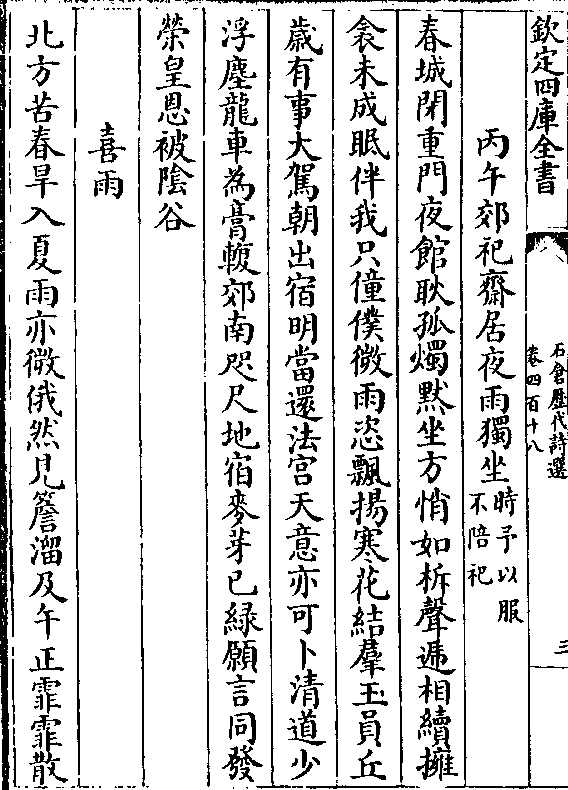 欽定四庫全書
石倉歴代詩選
卷四百十八
三
丙午郊祀齋居夜雨獨坐時予以服
不陪祀
春城閉重門夜館耿孤燭黙坐方悄如柝聲遞相續擁
衾未成眠伴我只僮僕微雨恣飄揚寒花結羣玉員丘
歳有事大駕朝出宿明當還法宫天意亦可卜清道少
浮塵龍車為膏轅郊南咫尺地宿麥芽已緑願言同發
榮皇恩被陰谷
喜雨
北方苦春旱入夏雨亦微俄然見簷溜及午正霏霏散